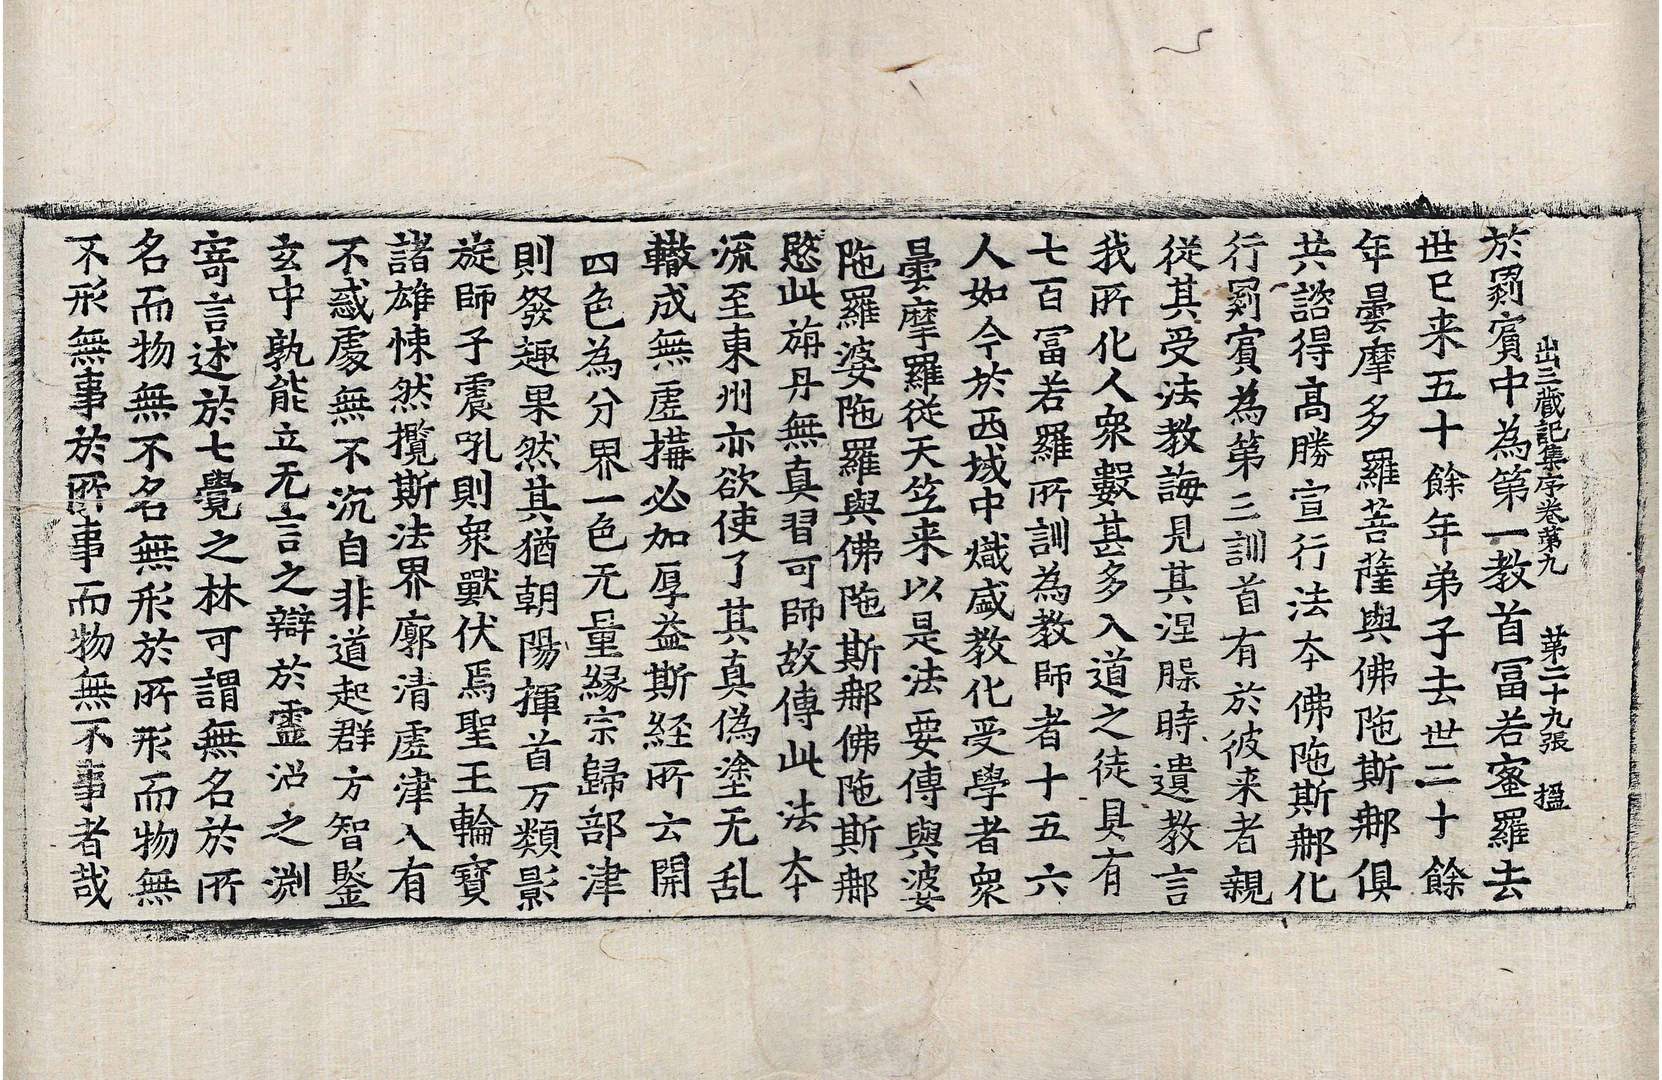 出三藏記集序卷第九　第二十九張　榲
於罽賓中為第一教首冨若蜜羅去
世已来五十餘年弟子去世二十餘
年曇摩多羅菩薩與佛陁斯那俱
共諮得髙勝宣行法夲佛陁斯那化
行罽賓為第三訓首有於彼来者親
從其受法教誨見其涅槃時遺教言
我所化人衆數甚多入道之徒具有
七百冨若羅所訓為教師者十五六
人如今於西域中熾盛教化受學者衆
曇摩羅從天竺来以是法要傳與婆
陁羅婆陁羅與佛陁斯那佛陁斯那
愍此旃丹無真習可師故傳此法夲
流至東州亦欲使了其真偽塗无乱
轍成無虛搆必加厚益斯経所云開
四色為分界一色无量緣宗歸部津
則發趣果然其猶朝陽揮首万類影
旋師子震吼則衆獸伏焉聖王輪寶
諸雄悚然攬斯法界廓清虛津入有
不惑處無不沉自非道起群方智鑒
玄中孰能立无言之辯於靈沼之渊
寄言述於七覺之林可謂無名於所
名而物無不名無形於所形而物無
不形無事於所事而物無不事者哉